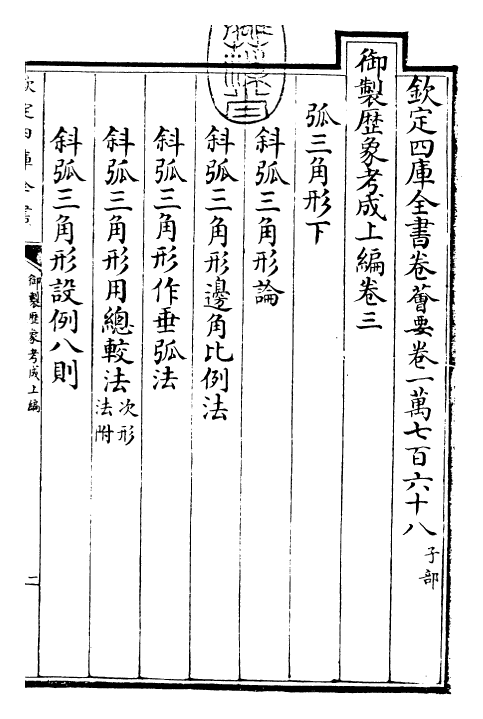 欽定四庫全書卷薈要卷一萬七百六十八子部
御製歷象考成上編卷三
弧三角形下
斜弧三角形論
斜弧三角形邊角比例法
斜弧三角形作垂弧法
斜弧三角形用總較法次形法附
斜弧三角形設例八則
欽定四庫全書
御製歷象考成上編